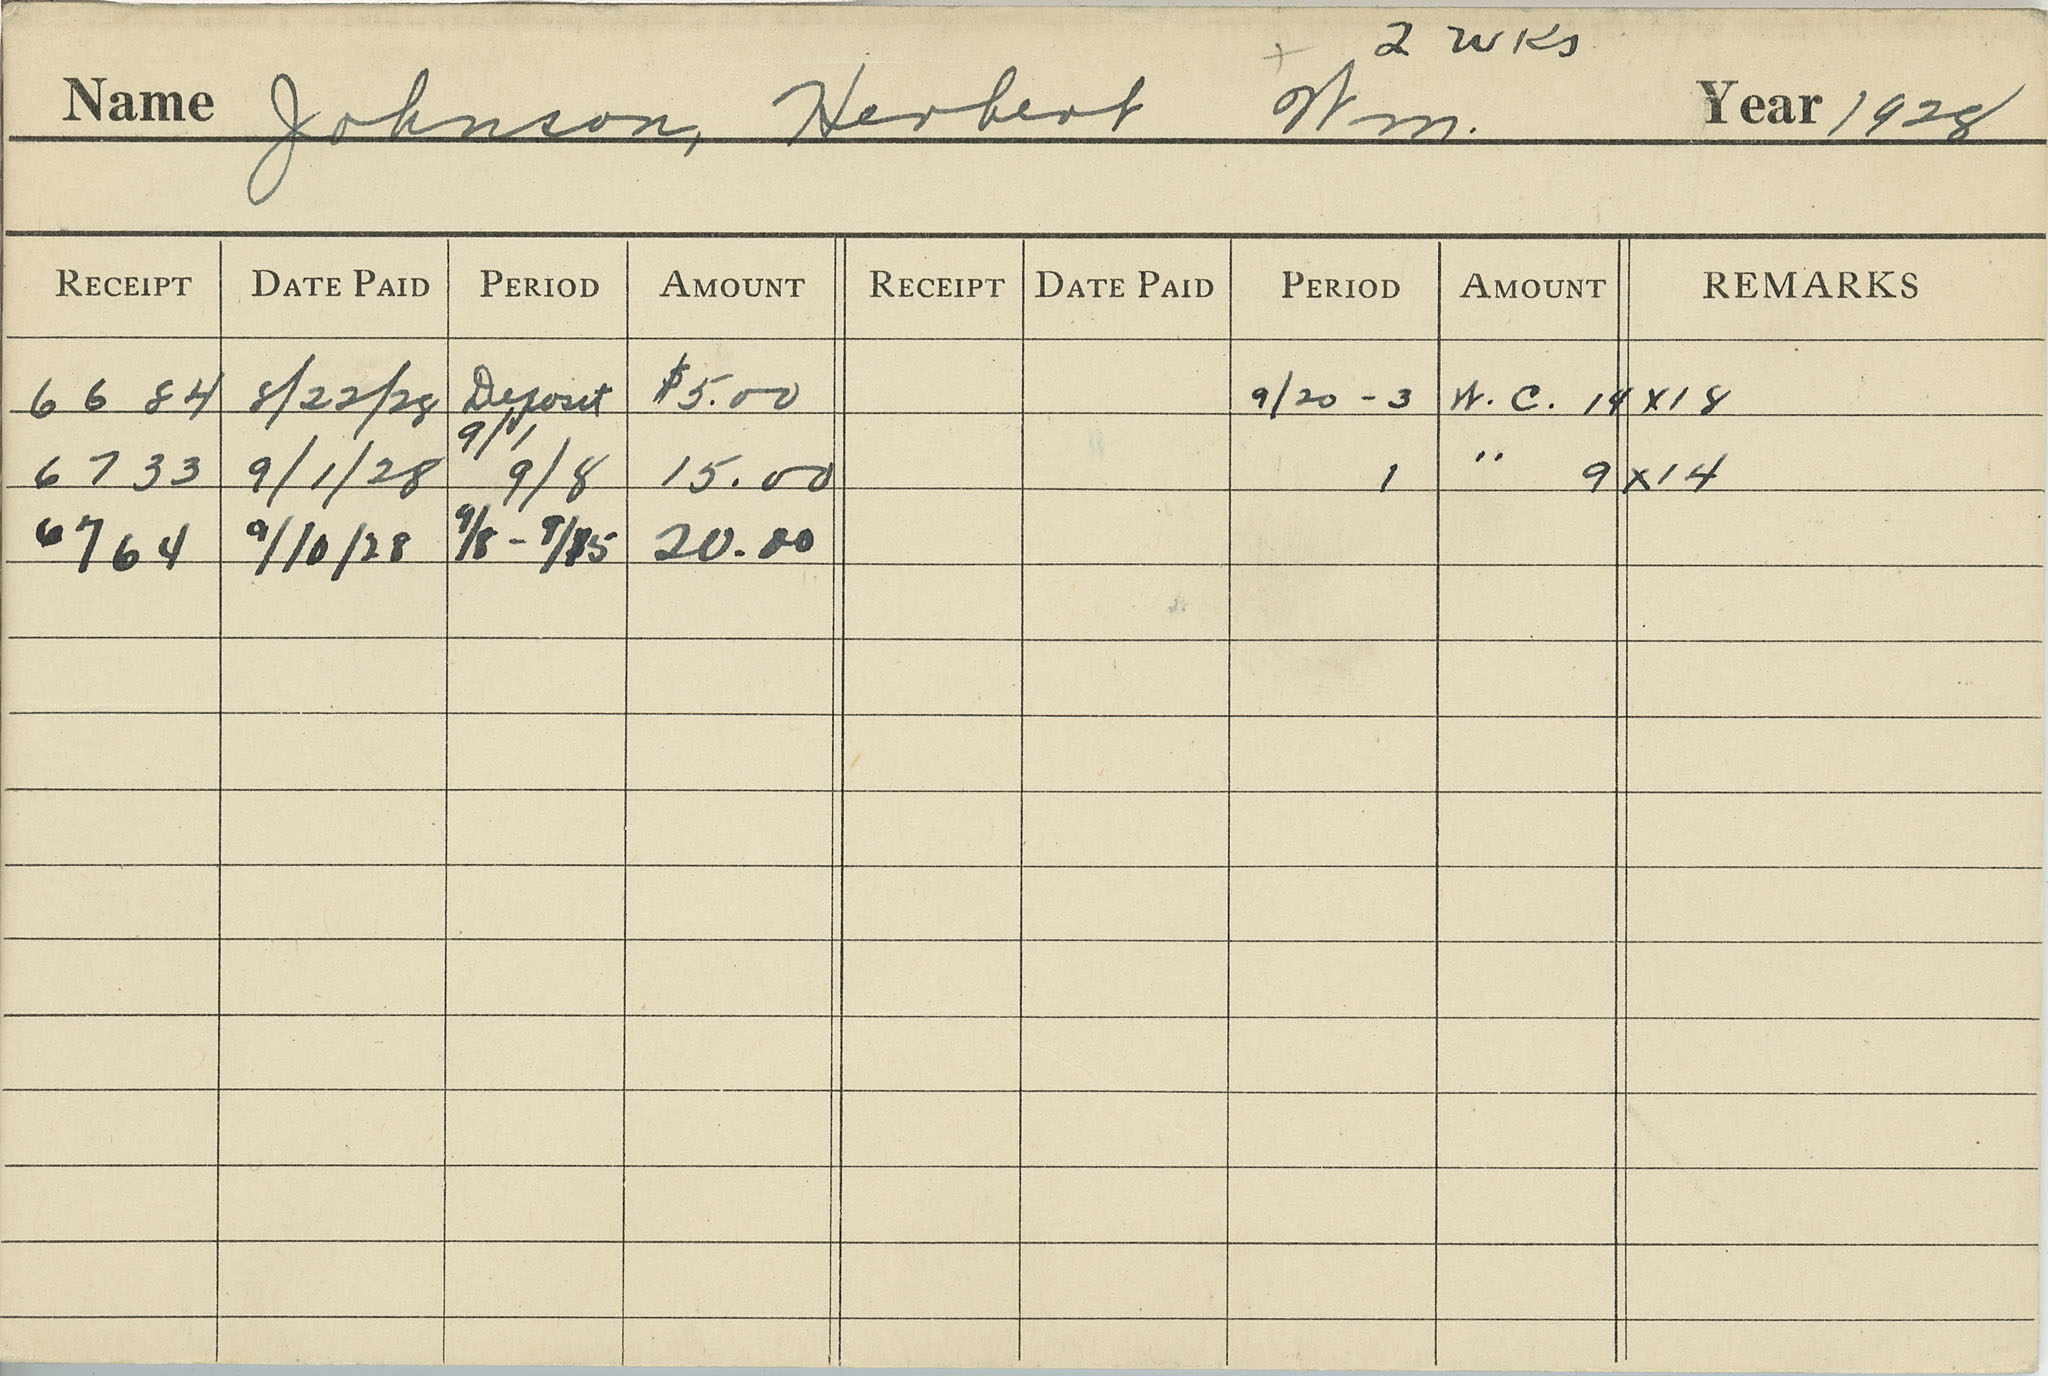 2 WKs
Name Johnson, Herbert Wm. Year 1928
RECEIPT DATE PAID PERIOD AMOUNT RECEIPT DATE PAID PERIOD AMOUNT REMARKS
6684 8/22/28 Deposit $5.00 9/20 - 3 W. C. 14 x 18
9/1
6733 9/1/28 9/8 15.00 1 " 9 x 14
6764 9/10/28 9/8 - 9/15 20.00